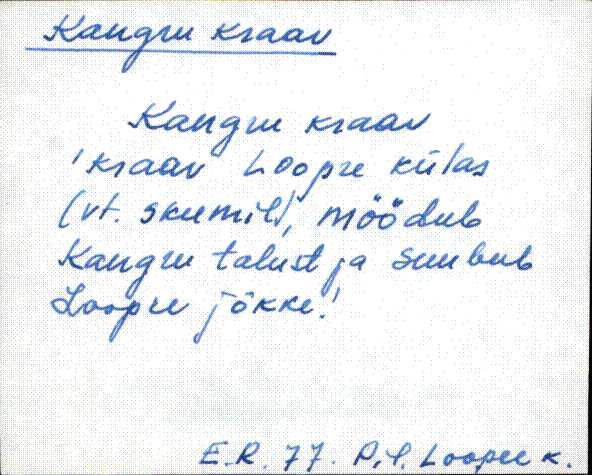 Kangru kraav
Kangru kraav
'kraav Loopre külas
(vt. skeemil), möödub
Kangru talust ja suubub
Loopre jõkke.'
E.R. 77. Pil. Loopre k.